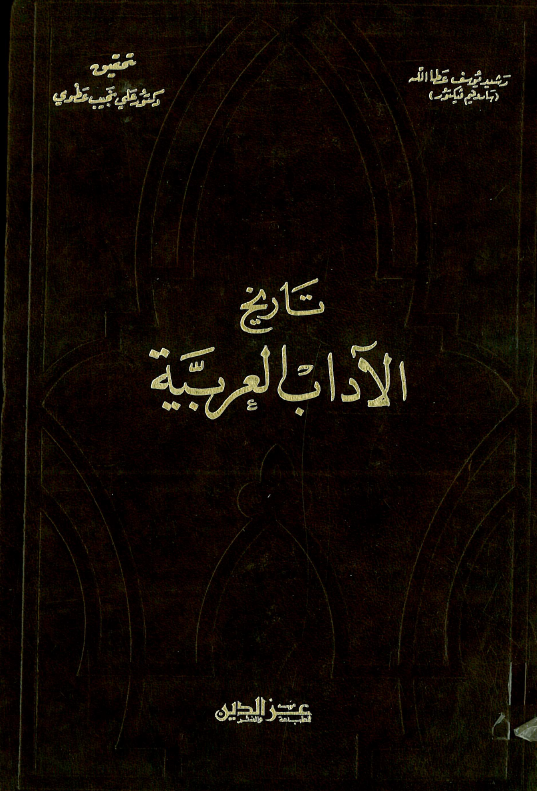 رشيد يوسف عطا الله
(بالدقيم فيكتور)
تحقيق
دكتور علي نجيب عطوي
تَاريخ
الآدابْ العربيَّة
عز الدين
للطباعة والنشر